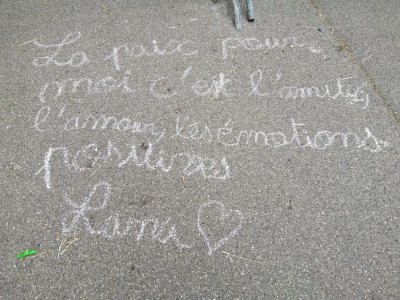 La paix pour
moi c'est l'amitié,
l'amour, les émotions
positives